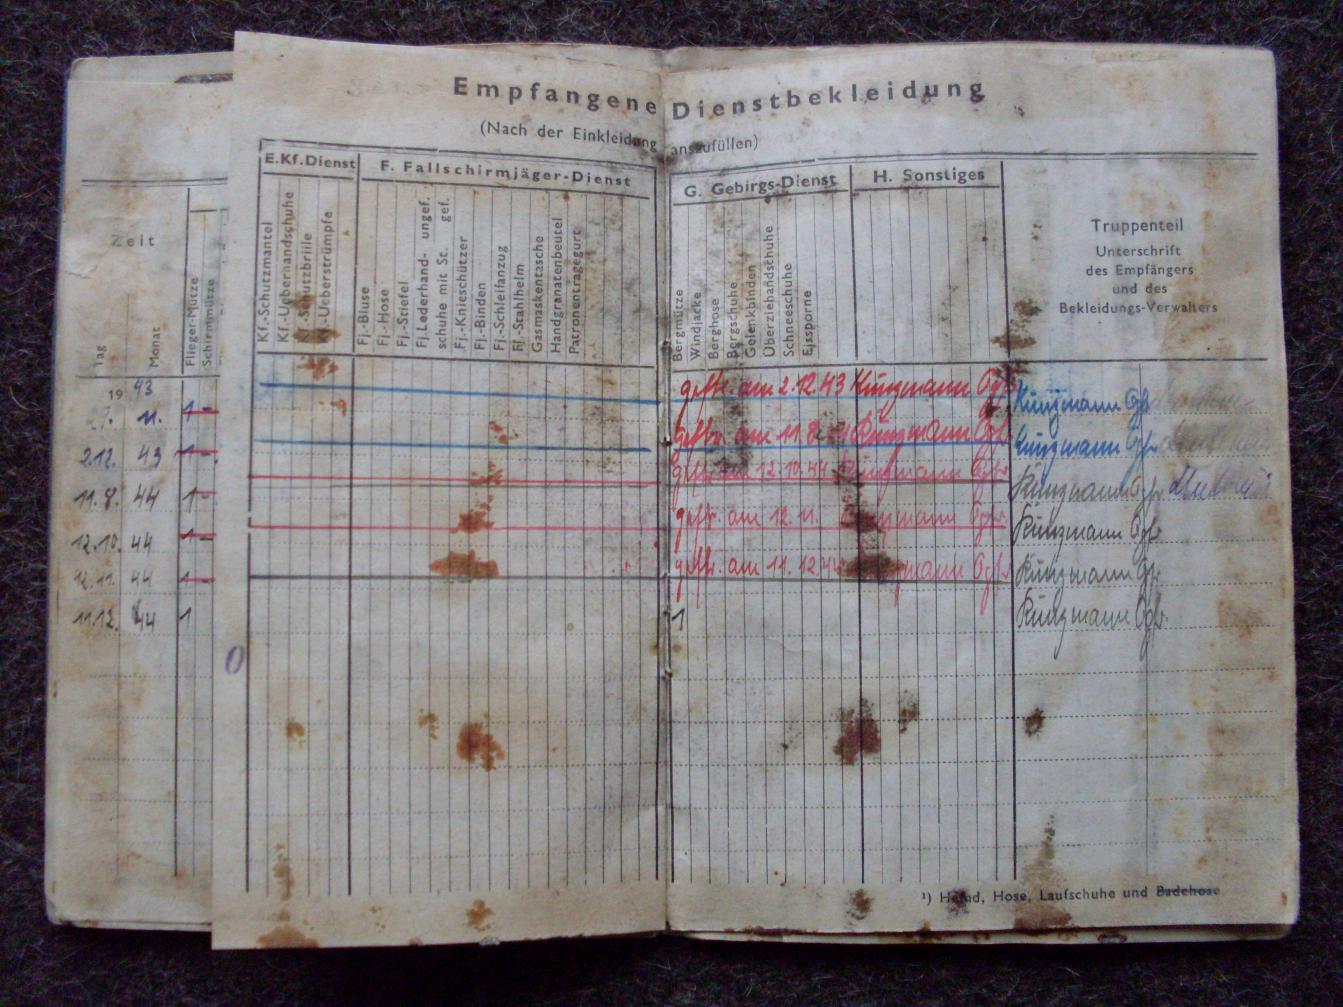 Empfangene Dienstbekleidung
(Nach der Einkleidung auszufüllen)
E.Kf.Dienst
F. Fallschirmjäger-Dienst
G. Gebirgs-Dienst
H. Sonstiges
Zeit
Tag
Monat
Flieger-Mütze
Schirmmütze
Kf.-Schutzmantel
Kf.-Ueberhandschuhe
Kf.-Schutzbrille
Kf.-Ueberstrümpfe
Fj.-Bluse
Fj.-Hose
Fj.-Stiefel
Fj.Lederhand- ungef.
schuhe mit St. gef.
Fj.-Knieschützer
Fj.-Binden
Fj.-Schleifanzug
Fj.-Stahlhelm
Gasmaskentasche
Handgranatenbeutel
Patronentragegurt
Bergmütze
Windjacke
Berghose
Bergschuhe
Gelenkbinden
Überziehandschuhe
Schneeschuhe
Eissporne
Truppenteil
Unterschrift
des Empfängers
und des
Bekleidungs-Verwalters
1943
11. 1 - gestr. am 2.12.43 Kungmann Ogfr. Kungmann Ogfr.
2.12. 43 1 - gestr. am 11.8. Kungmann Ogfr. Kungmann Ogfr.
11.8. 44 1 - gestr. am 12.10.44 Kungmann Ogfr. Kungmann Ogfr.
12.10. 44 1 - gestr. am 12.11. Ogfr. Kungmann Ogfr.
12.11. 44 1 - gestr. am 11.12.44 Ogfr. Kungmann Ogfr.
11.12. 44 1 1 Kungmann Ogfr.
0
¹) Hemd, Hose, Laufschuhe und Badehose